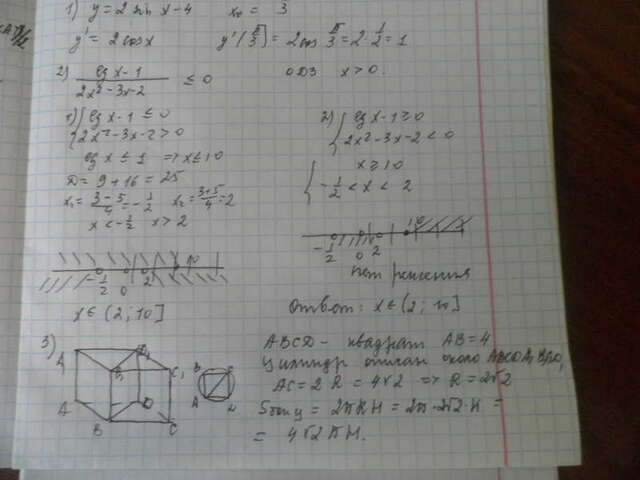 1) y = 2 sin x - 4 x₀ = 3
y' = 2 cos x y'(π/3) = 2 cos π/3 = 2 · 1/2 = 1
2) (lg x - 1)/(2x² - 3x - 2) ≤ 0 ОДЗ x > 0.
1) { lg x - 1 ≤ 0
{ 2x² - 3x - 2 > 0
lg x ≤ 1 ⇒ x ≤ 10
D = 9 + 16 = 25
x₁ = (3-5)/4 = -1/2 x₂ = (3+5)/4 = 2
x < -1/2 x > 2
-1/2 0 2 10
x ∈ (2; 10]
2) { lg x - 1 ≥ 0
{ 2x² - 3x - 2 < 0
{ x ≥ 10
{ -1/2 < x < 2
-1/2 0 2 10
нет решения
Ответ: x ∈ (2; 10]
3)
A₁ D₁ B₁ C₁
A D B C
B C A D
ABCD - квадрат AB = 4
Цилиндр описан около ABCDA₁B₁C₁D₁
AC = 2R = 4√2 ⇒ R = 2√2
Sбок ц = 2πRH = 2π · 2√2 · H =
= 4√2 πH.